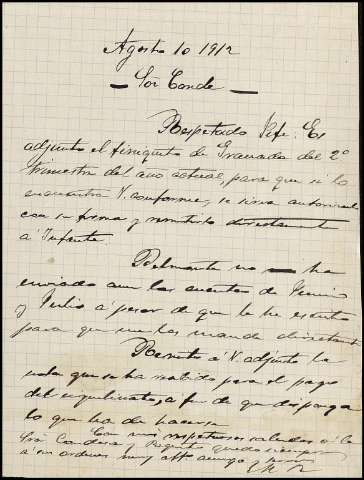 Agosto 10 1912
Sor Conde
Respetado Jefe: Es
adjunto el finiquito de Granada del 2º
trimestre del año actual, para que si lo
encuentra V. conforme, se sirva autorizarle
con su firma y remitirlo directamente
á Infante.
Belmonte no ha
enviado aun las cuentas de Junio
y Julio á pesar de que le he escrito
para que me las mande
Remito á V. adjunto la
nota que se ha recibido para el pago
del, á fin de que disponga
lo que ha de hacerse
Con mis respetuosos saludos á la
Sra Condesa y queda siempre
á sus ordenes muy afto. amigo y